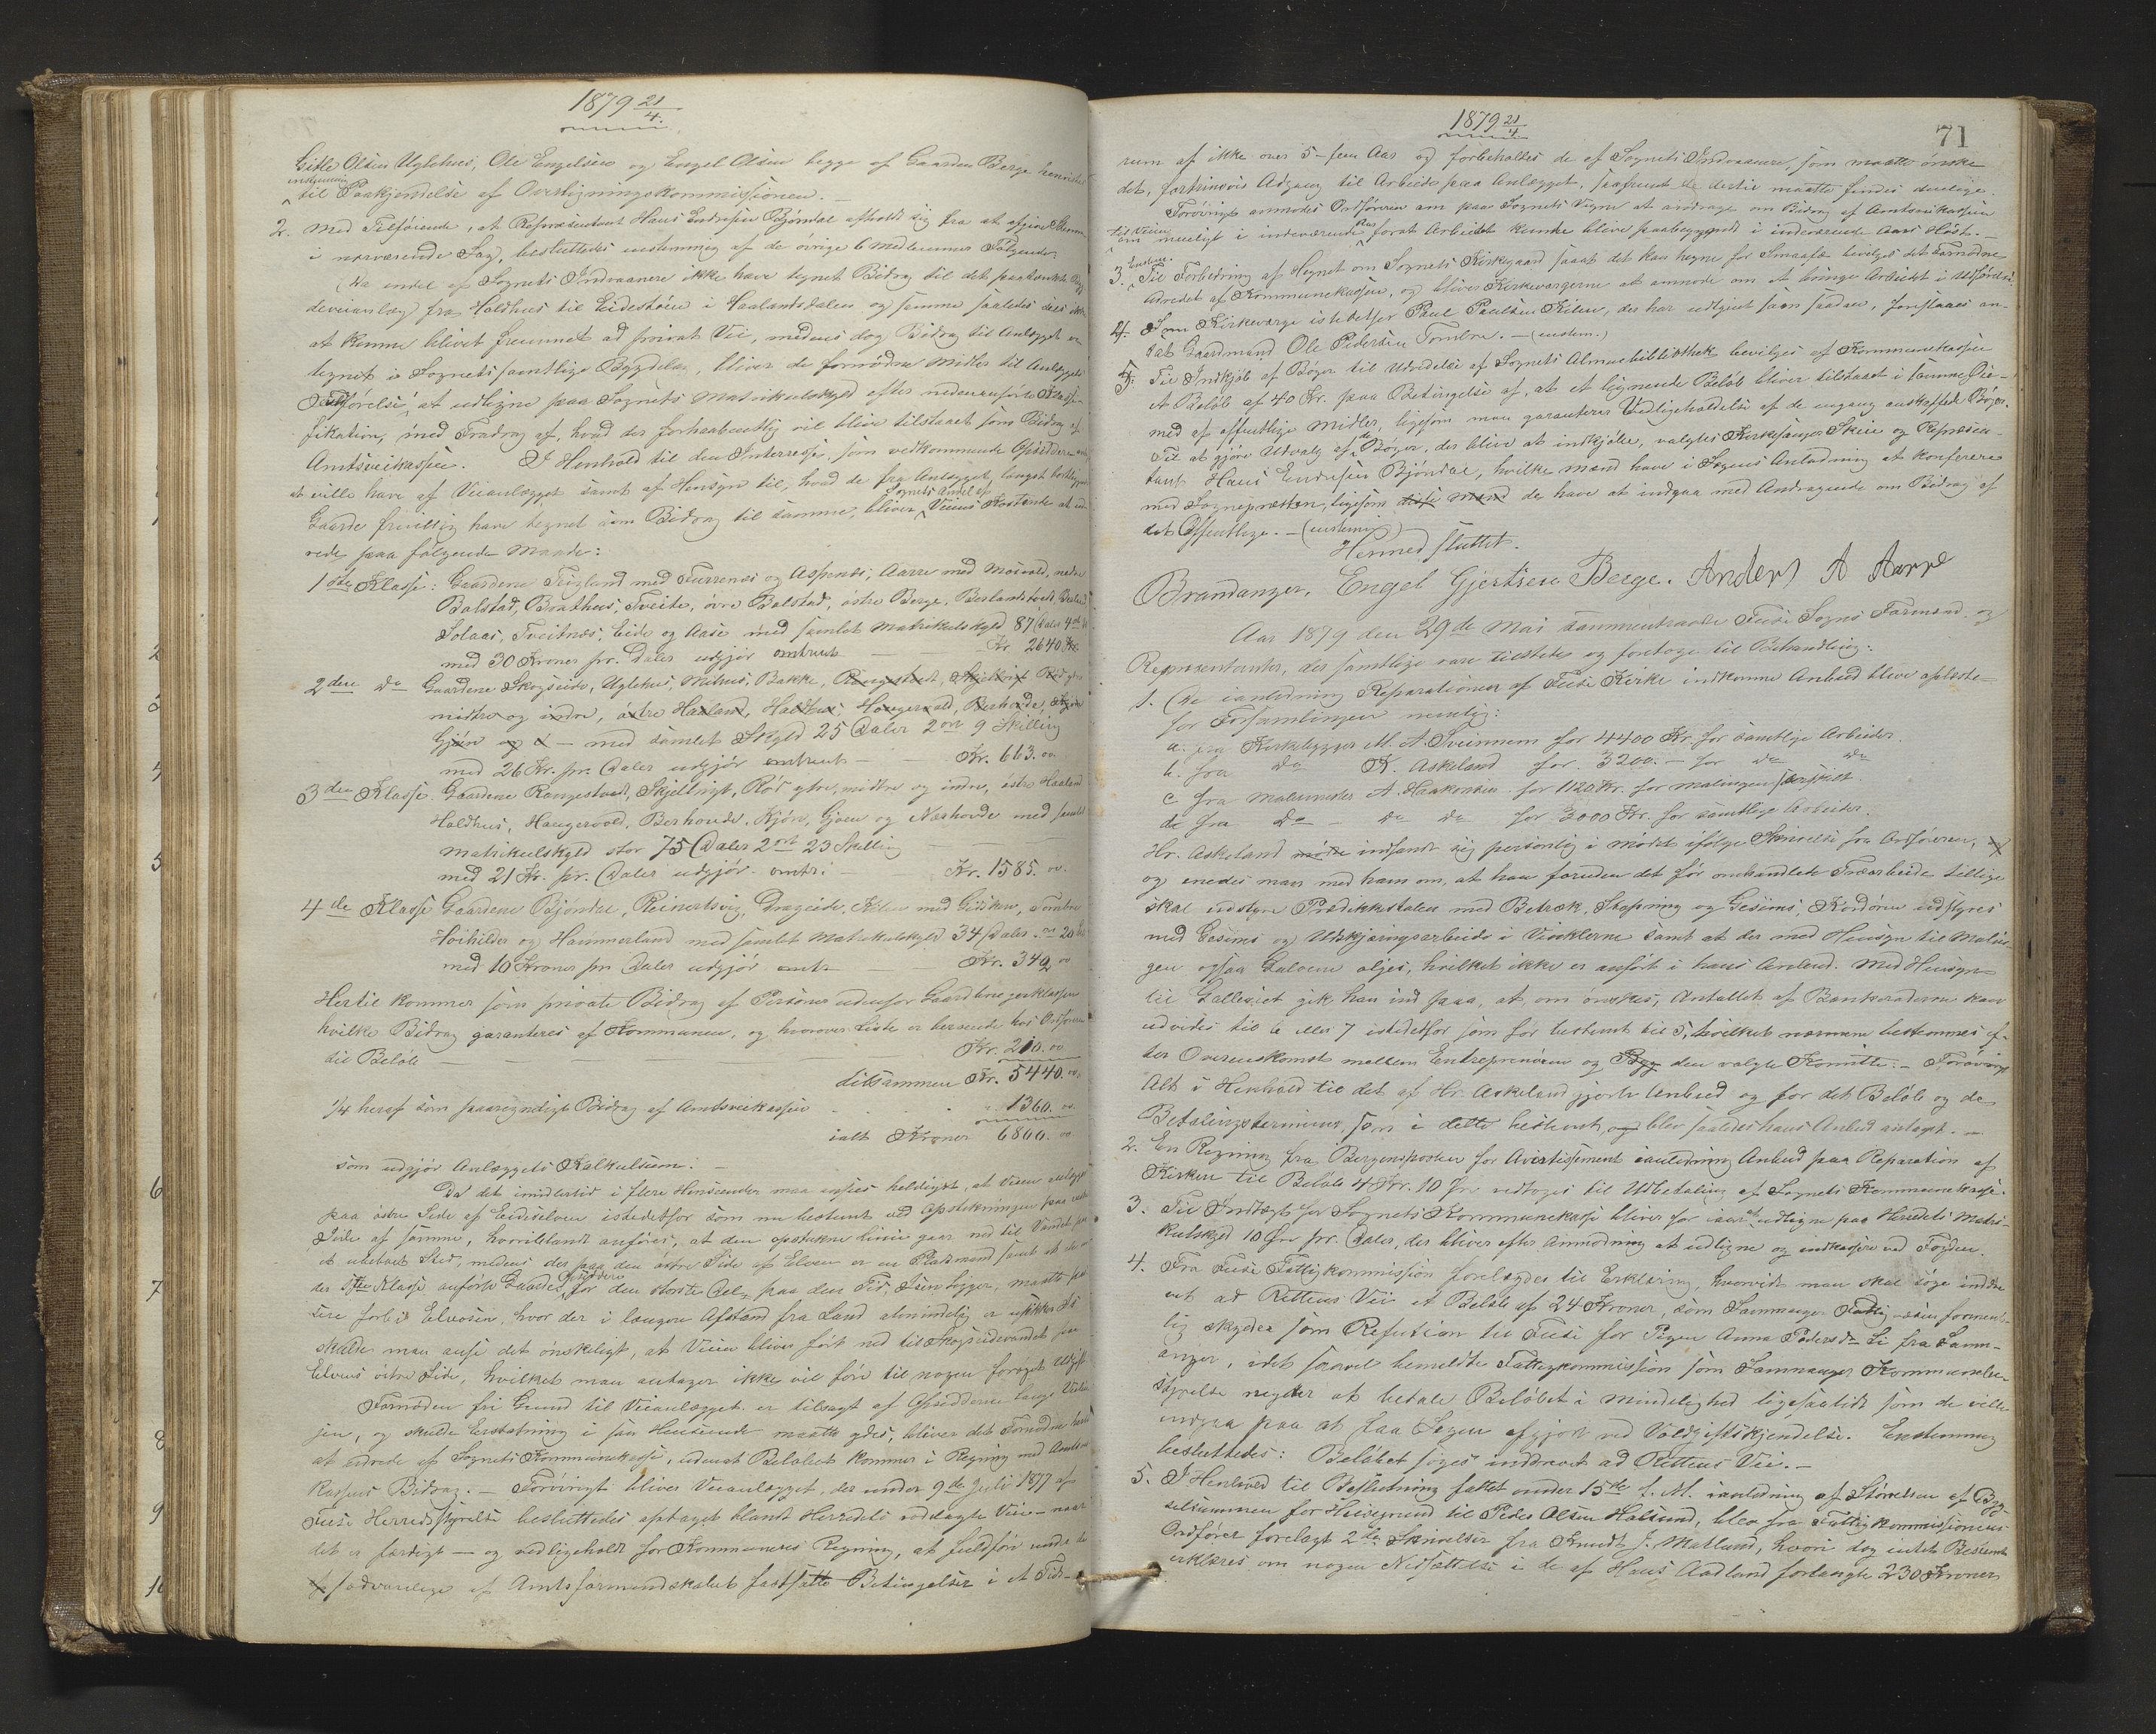 1879 21/4.
Gitle Olsen Uglehus, Ole Engelsen og Engel Olsen begge af Gaarden Berge henvistes
enstemmig
til Paakjendelse af Overligningskommissionen. –
2. Med Tilføiende, at Repræsentant Hans Endresen Bjøndal afholdt sig fra at afgive Stemme
i nærværende Sag, besluttedes enstemmig af de øvrige 6 Medlemmer Følgende:
Da endel af Sognets Indvaanere ikke have tegnet Bidrag til det paatænkte Byg-
deveianlæg fra Holdhus til Eideshøien i Haalandsdalen og samme saaledes sees ikke
at kunne blive fremmet ad privat Vei, medens dog Bidrag til Anlægget er
tegnet i Sognets samtlige Bygdelag, bliver de fornødne Midler til Anlæggets
Udførelse, at udligne paa Sognets Matrikulskyld efter nedenanførte Klassi-
fikation, med Fradrag af, hvad der forhaabentlig vil blive tilstaaet som Bidrag af
Amtsveikassen. I Henhold til den Interesse, som vedkommende Opsiddere
at ville have af Veianlægget samt af Hensyn til, hvad de fra Anlægget længst bortliggende
Gaarde frivillig have tegnet som Bidrag til samme, bliver Sognets Andel af Veiens Kostende at ud-
rede paa følgende Maade:
1ste Klasse: Gaardene Teigland med Furrenæs og Aspenæs, Aarre med Moivold, nedre
Balstad, Boathus, Tveite, øvre Balstad, østre Berge, Berlandstveit, Berland
Solaas, Tveitnæs, Eide og Aase med samlet Matrikulskyld 87 Daler 4 ort
med 30 Kroner pr. Daler udgjør omtrent — Kr 2640.
2den Do Gaardene Skogseide, Uglehus, Mehus, Bakke, Rangestvedt, Skjelbrigt Rød ytre
midtre og indre, østre Haaland, Haldhus, Haugervold, Berhovde,
Gjøn og — med samlet Skyld 25 Daler 2 ort 9 Skilling
med 26 Kr. pr. Daler udgjør omtrent — Kr. 663.00
3den Klasse Gaardene Rangestvedt, Skjelbrigt, Rød ytre, midtre og indre, østre Haaland
Holdhus, Haugervold, Berhovde, Kjøn, Gjøen og Nærhovde med samlet
Matrikulskyld stor 75 Daler 2 ort 23 Skilling
med 21 Kr. pr. Daler udgjør omtr: — Kr. 1585.00.
4de Klasse Gaardene Bjøndal, Reinertsvig, Drageide, Kilen med Gidsken, Tombre
Høihilder og Hammerland med samlet Matrikulskyld 34 Daler
med 10 Kroner pr Daler udgjør omtr — Kr. 342 00
Hertil kommer som private Bidrag af Personer udenfor Gaardbrugerklassen
hvilke Bidrag garanteres af Kommunen, og hvorover Liste er beroende hos Ordføreren
til Beløb — Kr. 210.00
tilsammen Kr. 5440.00
1/4 heraf som paaregneligt Bidrag af Amtsveikassen . . . 1360.00
ialt Kroner 6800.00
som udgjør Anlæggets Kalkulsum. –
Da det imidlertid i flere Henseender maa ansees heldigst, at Veien anlægges
paa østre Side af Eideselven istedetfor som nu bestemt ved Opstikningen paa vestre
Side af samme, hvoriblandt anføres, at den opstukne Linie gaar ned til Vandet paa
et ubeboet Sted, medens der paa den østre Side af Elven er en Pladsmand samt at de
der 4de Klasse anførte Gaardes Opsiddere for den største Del, paa den Tid, Isen ligger, maatte pas-
sere forbi Elveosen, hvor der i længere Afstand fra Land almindelig er usikker Is
skulde man anse det ønskeligt, at Veien bliver ført ned til Skogseidevandet paa
Elvens østre Side, hvilket man antager ikke vil føre til nogen forøget Udgift
Fornøden fri Grund til Veianlægget er tilsagt af Opsidderne langs Veilin-
jen, og skulde Erstatning i saa Henseende maatte ydes, bliver det Fornødne hertil
at udrede af Sognets Kommunekasse, udenat Beløbet kommer i Regning med Amtsvei-
kassens Bidrag. – Forøvrigt bliver Veianlægget, der under 9de Juli 1877 af
Fuse Herredsstyrelse besluttedes optaget blandt Herredets rodelagte Veie – naar
det er færdigt – og vedligeholdt for Kommunens Regning, at fuldføre under de
sædvanlige af Amtsformandskabet fastsatte Betingelser i et Tids-
1879 21/4.
71
rum af ikke over 5 – fem Aar og forbeholdes de af Sognets Indvaanere, som maatte ønske
det, fortrinsvis Adgang til Arbeide paa Anlægget, saafremt de dertil maatte findes duelige.
Forøvrigt anmodes Ordføreren om paa Sognets Vegne at andrage om Bidrag af Amtsveikassen
til Veien
om muligt i indeværende Aar forat Arbeidet kunde blive paabegyndt i indeværende Aars Høst. –
Enstem.
3. Til Forbedring af Hegnet om Sognets Kirkegaard saaat det kan hegne for Smaafæ bevilges det Fornødne
udredet af Kommunekassen, og bliver Kirkevergerne at anmode om at bringe Arbeidet i Udførelse.
4. Som Kirkeverge istedetfor Paul Paulsen Kilen, der har udtjent som saadan, foreslaaes an-
sat Gaardmand Ole Pedersen Tombre. – (enstem.)
5. Til Indkjøb af Bøger til Udvidelse af Sognets Almuebibliothek bevilges af Kommunekassen
et Beløb af 40 Kr. paa Betingelse af, at et lignende Beløb bliver tilstaaet i samme Øie-
med af offentlige Midler, ligesom man garanterer Vedligeholdelse af de engang anskaffede Bøger.
Til at gjøre Udvalg af de Bøger, der blive at indkjøbe, valgtes Kirkesanger Skeie og Repræsen-
tant Hans Endresen Bjøndal, hvilke Mænd have i Sagens Anledning at konferere
med Sognepresten, ligesom disse Mænd de have at indgaa med Andragende om Bidrag af
det Offentlige. – (enstemmig)
Hermed sluttet.
Brandanger, Engel Gjertsen Berge. Anders A Aarre
Aar 1879 den 29de Mai sammentraadte Fuse Sogns Formænd og
Repræsentanter, der samtlige vare tilstede og foretoge til Behandling:
1. De ianledning Reparationen af Fuse Kirke indkomne Anbud bleve oplæste
for Forsamlingen nemlig:
a. fra Kirkebygger M. A. Sveinnem for 4400 Kr. for samtlige Arbeider.
b. fra Do K. Askeland for 3200. – for Do Do
c fra Malermester A. Haakonsen for 1120 Kr. for Malingen særskilt.
d. fra Do – Do Do for 3000 Kr. for samtlige Arbeider.
Hr. Askeland mødte indfandt sig personlig i Mødet ifølge Skrivelse fra Ordføreren,
og enedes man med ham om, at han foruden det før omhandlede Træarbeide tillige
skal udstyre Prædikestolen med Betræk, Stopning og Gesims, Kordøren udstyres
med Gesims og Udskjæringsarbeide i Vinklerne samt at der med Hensyn til Malin-
gen ogsaa Gulvene oljes, hvilket ikke er anført i hans Anbud. Med Hensyn
til Galleriet gik han ind paa, at, om ønskes, Antallet af Bænkeraderne kan
udvides til 6 eller 7 istedetfor som før bestemt til 5, hvilket nærmere bestemmes ef-
ter Overenskomst mellem Entreprenøren og Byg den valgte Komitte. – Forøvrigt
Alt i Henhold til det af Hr. Askeland gjorte Anbud og for det Beløb og de
Betalingsterminer, som i dette bestemt, og blev saaledes hans Anbud antaget. –
2. En Regning fra Bergensposten for Avertissement ianledning Anbud paa Reparation af
Kirken til Beløb 4 Kr. 10 Øre vedtoges til Udbetaling af Sognets Kommunekasse.
3. Til Indtægt for Sognets Kommunekasse bliver for iaar at udligne paa Herredets Matri-
kulskyld 10 Øre pr. Daler, der bliver efter Anmodning at udligne og indkassere ved Fogden.
4. Fra Fuse Fattigkommission forelagdes til Erklæring, hvorvidt man skal søge inddre-
vet ad Rettens Vei et Beløb af 24 Kroner, som Samnanger Fattigvæsen forment-
lig skylder som Refusion til Fuse for Pigen Anna Pedersdr Li fra Samn-
anger, idet saavel bemeldte Fattigkommission som Samnanger Kommunebe-
styrelse negter at betale Beløbet i Mindelighed ligesaalidt som de ville
indgaa paa at faa Sagen afgjort ved Voldgiftskjendelse. Enstemmig
besluttedes: Beløbet søges inddrevet ad Rettens Vei. –
5. I Henhold til Beslutning fattet under 15de f. M. ianledning af Størrelsen af Byg-
selsummen for Husegrund til Peder Olsen Holsund, blev fra Fattigkommissionens
Ordfører forelagt 2de Skrivelser fra Knudt J. Mætland, hvori dog intet Bestemt
erklæres om nogen Nedsættelse i de af Hans Aadland forlangte 230 Kroner